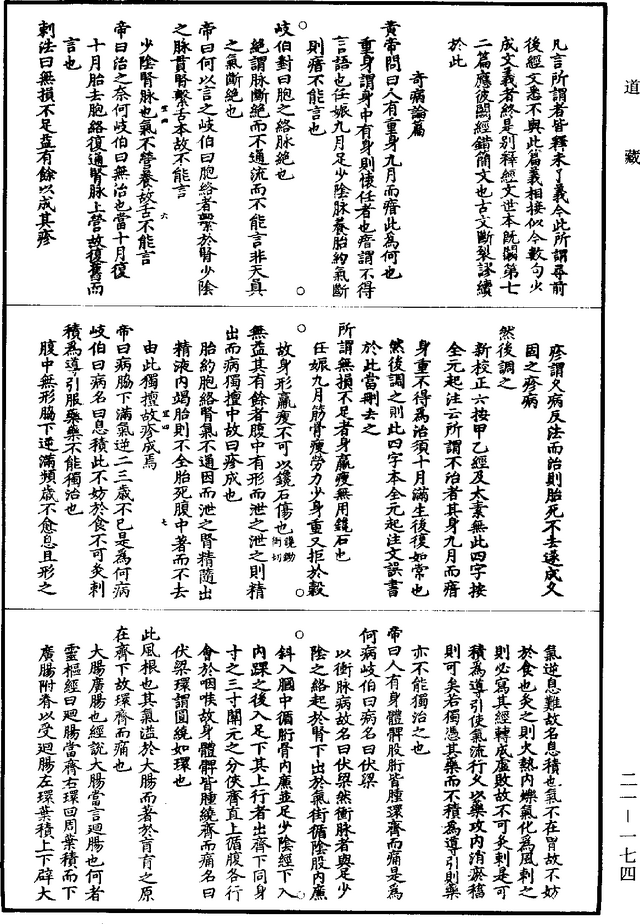 道藏
凡言所謂者皆釋未了義今此所謂尋前
後經文悉不與此篇義相接似今數句少
成文義者終是別釋經文世本既闕第七
二篇應彼闕經錯簡文也古文斷裂謬續
於此
奇病論篇
黃帝問曰人有重身九月而瘖此為何也
重身謂身中有身則懷任者也瘖謂不得
言語也任娠九月足少陰脉養胎約氣斷
則瘖不能言也
岐伯對曰胞之絡脉絶也
絶謂脉斷絶而不通流而不能言非天真
之氣斷絶也
帝曰何以言之岐伯曰胞絡者繫於腎少陰
之脉貫腎繫舌本故不能言
少陰腎脉也氣不營養故舌不能言
帝曰治之奈何岐伯曰無治也當十月復
十月胎去胞絡復通腎脉上營故復舊而
言也
刺法曰無損不足益有餘以成其疹
疹謂久病反法而治則胎死不去遂成久
固之疹病
然後調之
新校正云按甲乙經及太素無此四字按
全元起注云所謂不治者其身九月而瘖
身重不得為治須十月滿生後復如常也
然後調之則此四字本全元起注文誤書
於此當刪去之
所謂無損不足者身羸瘦無用鑱石也
任娠九月筋骨瘦勞力少身重又拒於穀
故身形羸瘦不可以鑱石傷也
無益其有餘者腹中有形而泄之泄之則精
出而病獨擅中故曰疹成也
胎約胞絡腎氣不通因而泄之腎精隨出
精液内竭胎則不全胎死腹中著而不去
由此獨擅故疹成焉
帝曰病脇下滿氣逆二三歲不已是為何病
岐伯曰病名曰息積此不妨於食不可灸刺
積為導引服藥藥不能獨治也
腹中無形脇下逆滿頻歲不愈息且形之
氣逆息難故名息積也氣不在胃故不妨
於食也灸之則火熱内爍氣化為風刺之
則必寫其經轉成虛敗故不可灸刺是可
積為導引使氣流行久以藥攻内消瘀稸
則可矣若獨憑其藥而不積為導引則藥
亦不能獨治之也
帝曰人有身體髀股䯒皆腫環齊而痛是為
何病岐伯曰病名曰伏梁
以衝脉病故名曰伏梁然衝脉者與足少
陰之絡起於腎下出於氣街循陰股内廉
斜入膕中循䯒骨内廉並足少陰經下入
内踝之後入足下其上行者出齊下同身
寸之三寸關元之分俠齊直上循腹各行
會於咽喉故身體髀皆腫繞齊而痛名曰
伏梁環謂圓繞如環也
此風根也其氣溢於大腸而著於肓肓之原
在齊下故環齊而痛也
大腸廣腸也經說大腸當言迴腸也何者
靈樞經曰迴腸當齊右環回周葉積而下
廣腸附脊以受迴腸左環葉積上下辟大
二一—一七四